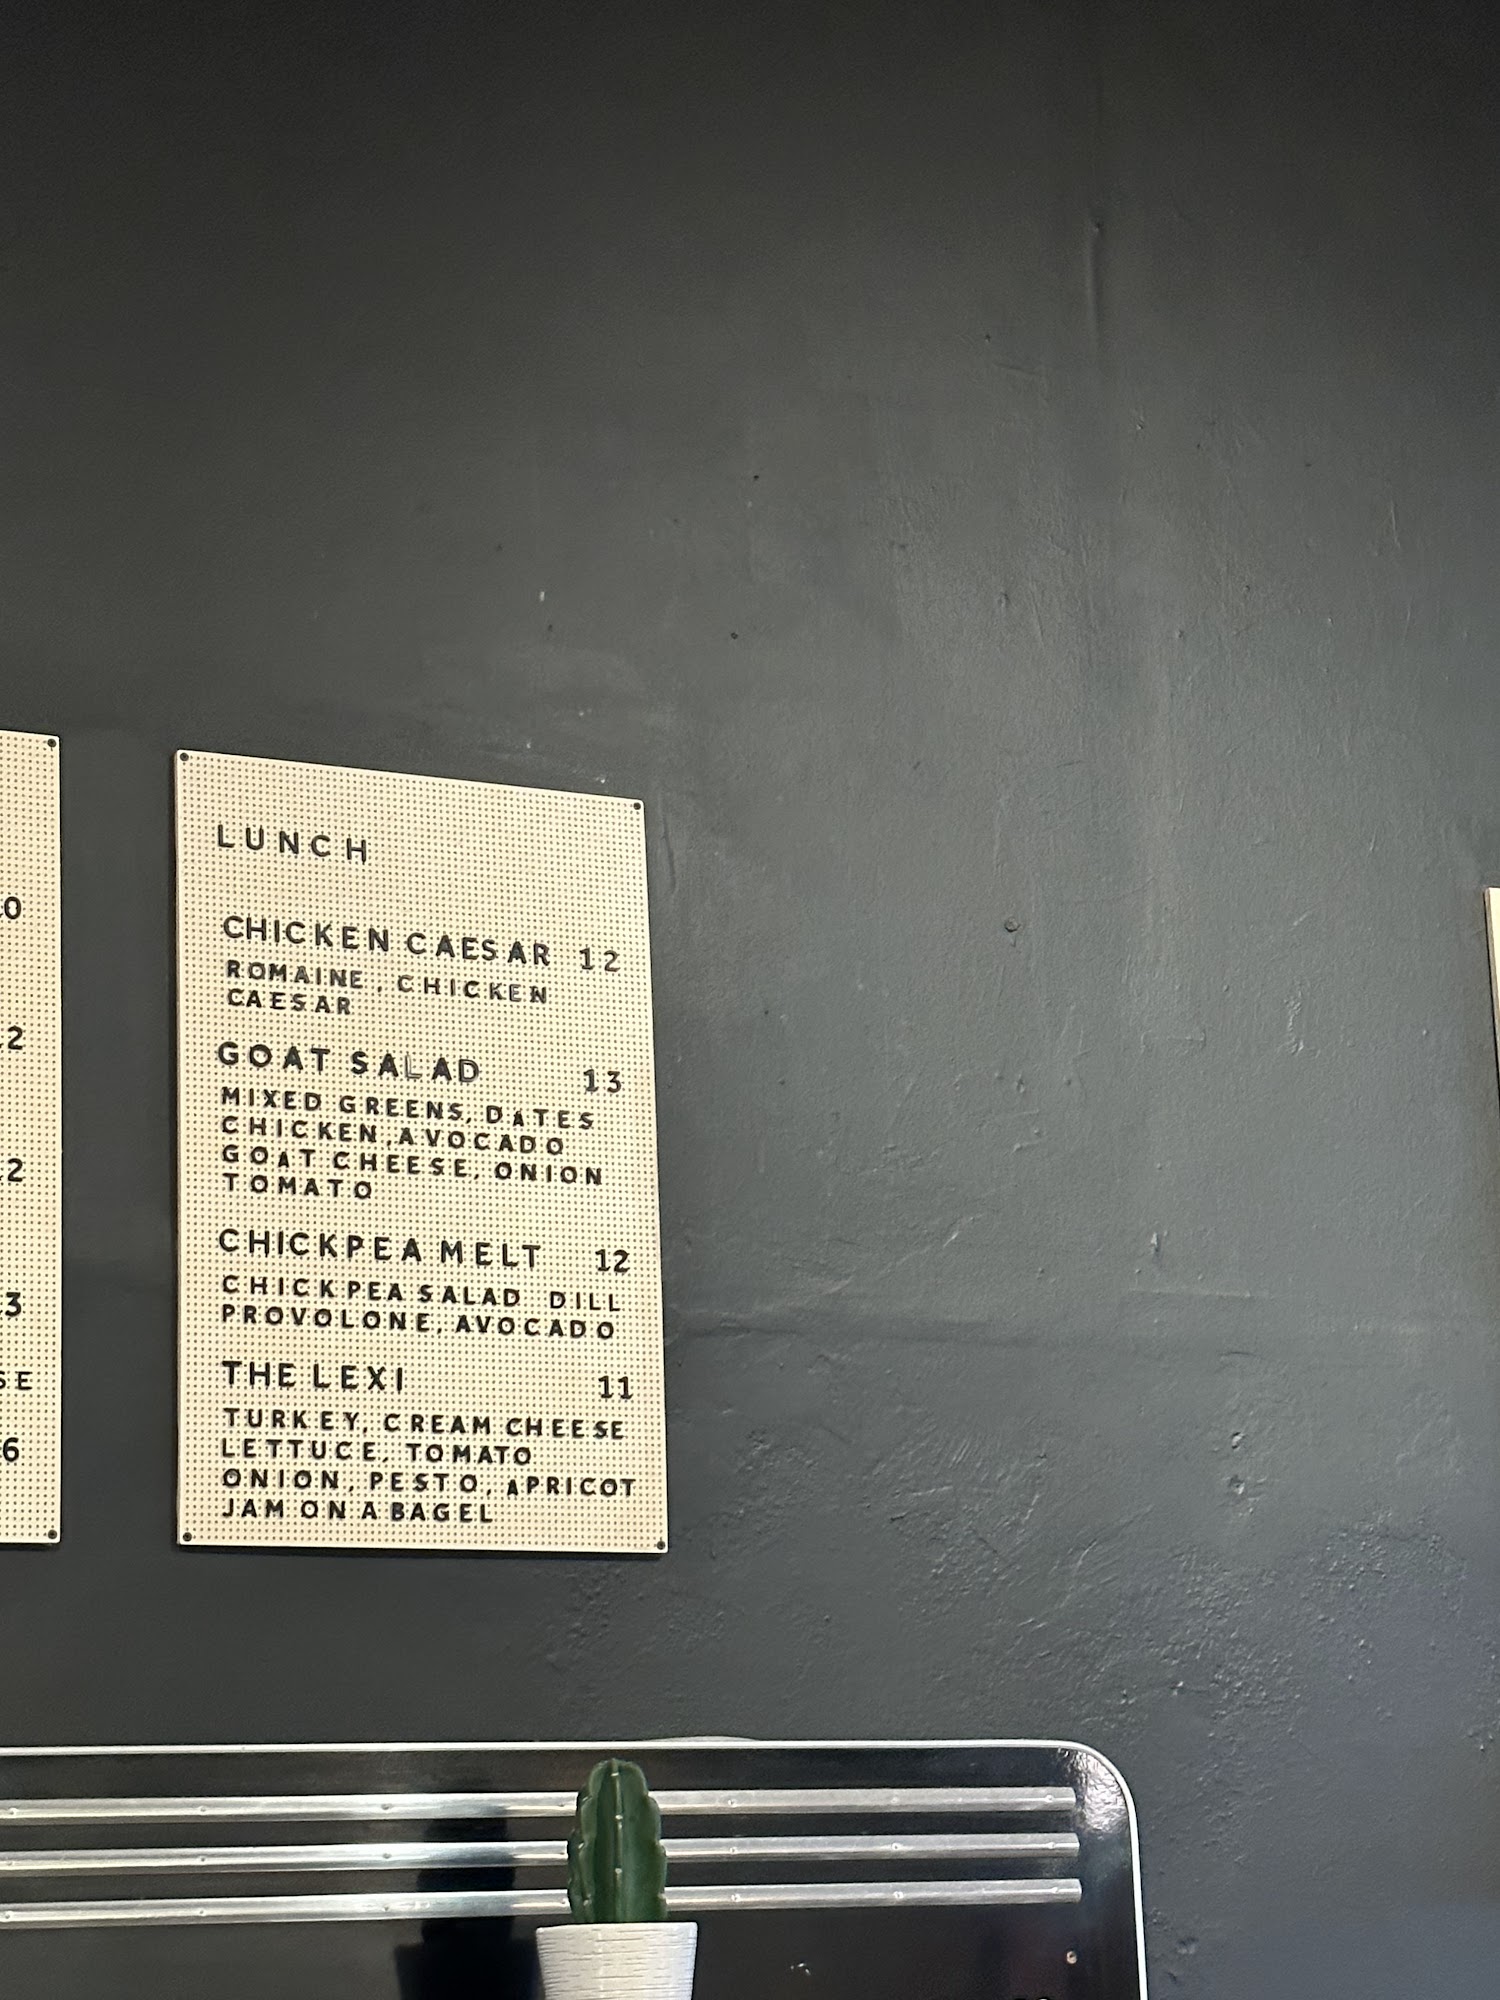 LUNCH
CHICKEN CAESAR 12
ROMAINE, CHICKEN
CAESAR
GOAT SALAD 13
MIXED GREENS, DATES
CHICKEN, AVOCADO
GOAT CHEESE, ONION
TOMATO
CHICKPEA MELT 12
CHICKPEA SALAD DILL
PROVOLONE, AVOCADO
THE LEXI 11
TURKEY, CREAM CHEESE
LETTUCE, TOMATO
ONION, PESTO, APRICOT
JAM ON A BAGEL